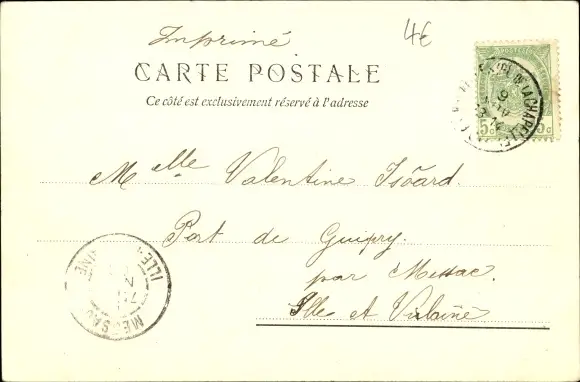 Imprimé
4€
CARTE POSTALE
Ce côté est exclusivement réservé à l'adresse
POSTES
5c 5c
DE LA CHAPELLE
Melle Valentine Isöard.
Port de Guipry
par Messac.
Ille et Vilaine
MESSAC
ILLE-